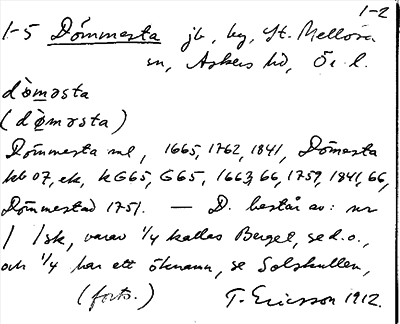 1-2
1-5 Dömmesta jb, by, St. Mellösa
sn, Askers hd, Ör. l.
dòməsta
(dø̀mərsta)
Dömmesta ml, 1665, 1762, 1841, Dömesta
kb 07, ek, KG65, G65, 1663, 66, 1759, 1841, 66,
Dömmestad 1751. — D. består av: nr
1 1sk, varav 1/4 kallas Berget, se d.o.,
och 1/4 har ett öknamn, se Solskullen,
(forts.) T. Ericsson 1912.